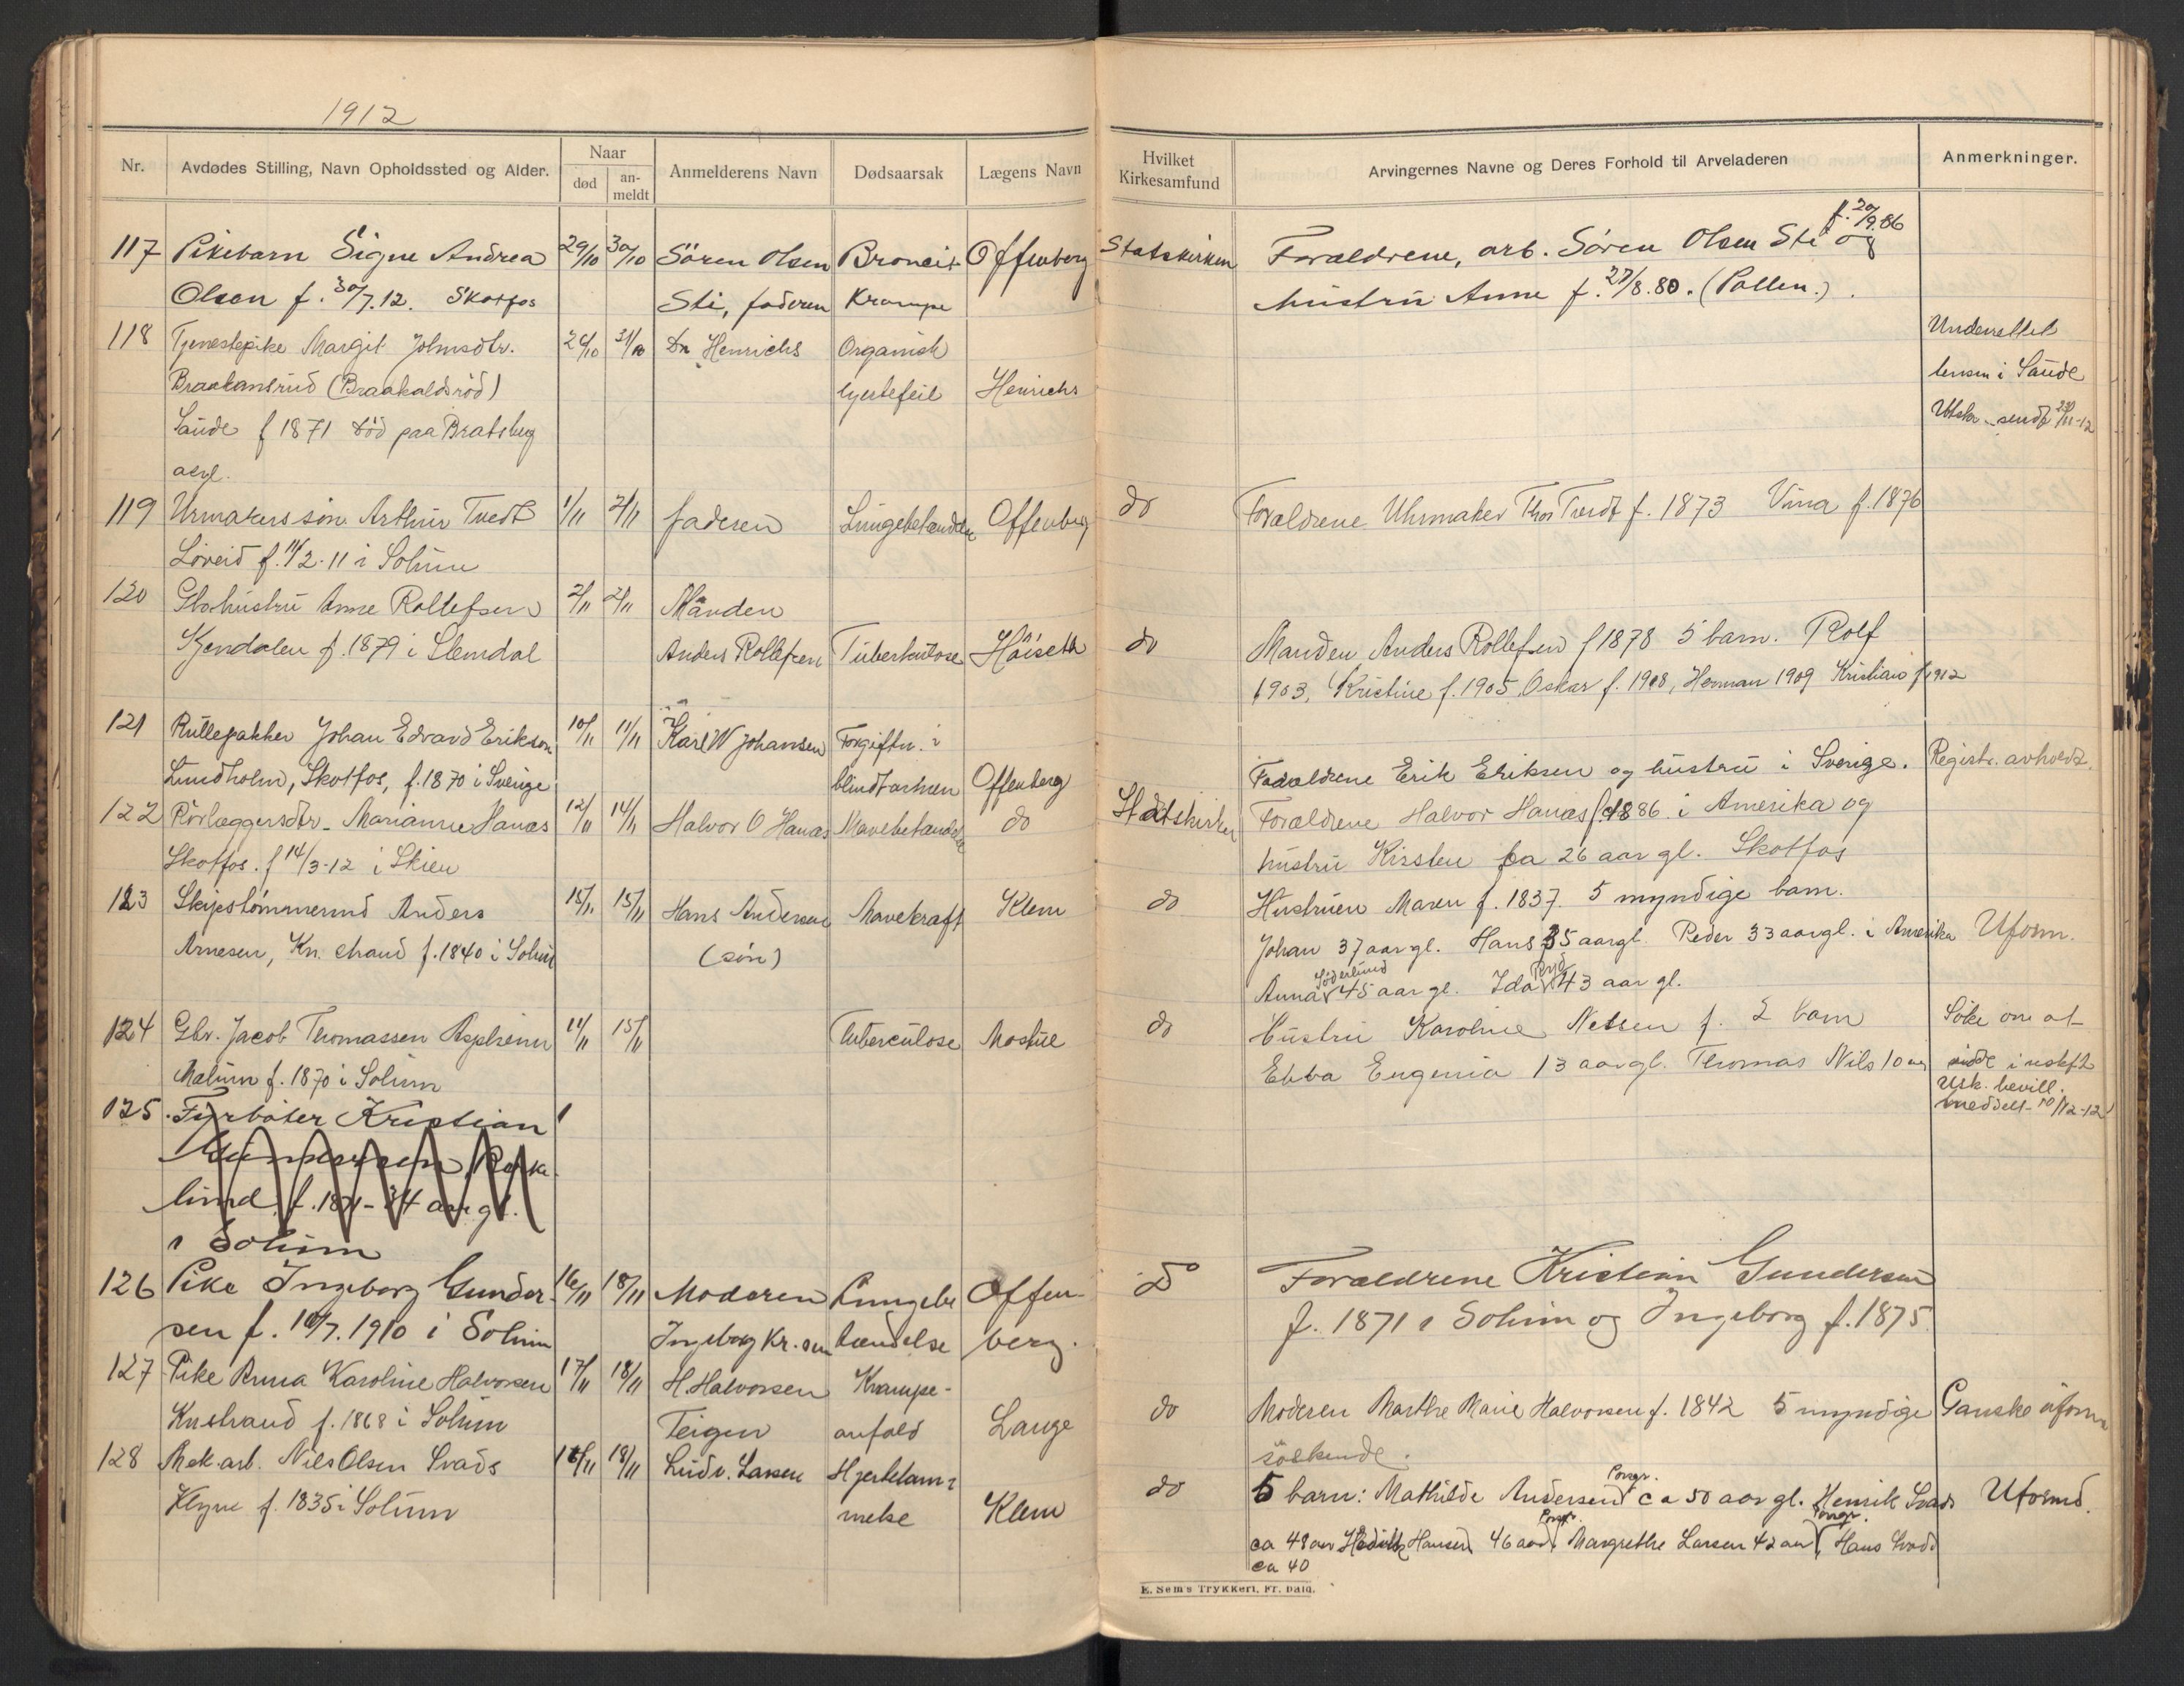 1912
Nr. Avdødes Stilling, Navn Opholdssted og Alder. Naar død an-meldt Anmelderens Navn Dødsaarsak Lægens Navn Hvilket Kirkesamfund Arvingernes Navne og Deres Forhold til Arveladeren Anmerkninger.
117 Pikebarn Signe Andrea 29/10 30/10 Sören Olsen Broncit Offenberg Statskirken Forældrene, arb. Sören Olsen Sti f. 20/9.86 og
Olsen f. 30/7.12. Skotfos Sti, faderen Krampe hustru Anne f. 27/8.80. (Pollen.).
118 Tjenestepike Margit Johnsdtr. 31/10 Dr. Henrichs Organisk Underrettet
Braakansrud (Braakaldsröd) hjertefeil Henrichs lensm i Saude
Saude f 1871 död paa Bratsberg Utskr. sendt
asyl.
119 Urmakers sön Arthur Tvedt 1/11 2/11 faderen Lungebetændelse Offenberg do Forældrene Uhrmaker Thor Tvedt f. 1873 Vina f. 1876
Löveid f. 11/2-11 i Solum
120 Gbr.hustru Anne Rollefsen 2/11 2/11 Manden
Kjendalen f. 1879 i Slemdal Anders Rollefsen Tuberkulose Höiseth do Manden Anders Rollefsen f 1878 5 barn. Rolf
1903, Kristine f. 1905, Oskar f. 1908, Herman 1909 Kristian f 1912
121 Rullepakker Johan Edvard Erikson 10/11 11/11 Karl W Johansen Forgiftn. i
Lundholm, Skotfos, f. 1870 i Sverige blindtarmen Offenberg Forældrene Erik Eriksen og hustru i Sverige. Registr. avholdt.
122 Rörlæggersdtr. Marianne Hanås 12/11 14/11 Halvor O Hanås Mavebetændelse do Statskirken Forældrene Halvor Hanås f. 1886 i Amerika og
Skotfos. f 14/3-12 i Skien hustru Kirsten ca 26 aar gl. Skotfos
123 Skipstömmermd Anders 15/11 15/11 Hans Andersen Mavekræft Klem do Hustruen Maren f. 1837. 5 myndige barn.
Arnesen, Kn. strand f. 1840 i Solum (sön) Johan 37 aar gl. Hans 35 aar gl. Peder 33 aar gl. i Amerika Uform.
Anna Söderlund 45 aar gl. Ida Ryd 43 aar gl.
124 Gbr. Jacob Thomassen Aspheim 11/11 15/11 Tuberculose Mostue do Hustru Karoline Nelsen f. 2 barn Söke om at
Mælum f. 1870 i Solum Ebba Eugenia 13 aar gl. Thomas Nils 10 aar sidde i uskift
Usk. bevill.
meddelt 10/12-12
125. Fyrböter Kristian
Gundersen,
lund f. 1871 - 34 aar gl.
i Solum
126 Pike Ingeborg Gunder- 16/11 18/11 Moderen Lungebe Offen- do Forældrene Kristian Gundersen
sen f. 10/7.1910 i Solum Ingeborg Kr.sen tændelse berg. f. 1871 i Solum og Ingeborg f. 1875.
127 Pike Anna Karoline Halvorsen 17/11 18/11 H. Halvorsen Krampe-
Knstrand f. 1868 i Solum Teigen anfald Lange do Moderen Marthe Marie Halvorsen f. 1842 5 myndige Ganske uform
söskende.
128 Mek. arb. Nils Olsen Svads 16/11 18/11 Ludv. Larsen Hjertelam- do 5 barn: Mathilde Andersen Porsgr. ca 50 aar gl. Henrik Svads Uformd.
Klyve f. 1835 i Solum melse Klem ca 48 aar Hansen Porsgr. 46 aar, Margrethe Larsen 42 aar Porsgr., Hans Svads
ca 40
E. Sem's Trykkeri, Fr. hald.